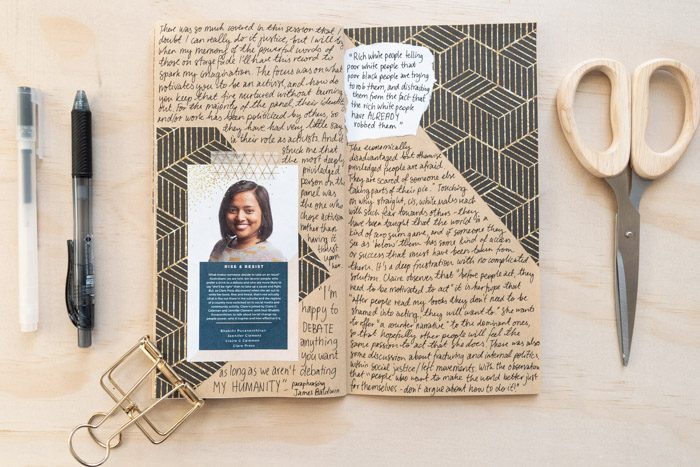 There was so much covered in this session that I
doubt I can really do it justice, but I will try
when my memory of the powerful words of
those on stage fade I'll have this record to
spark my imagination. The focus was on what
motivates you to be an activist, and how do
you keep that fire nurtured without burning
out. For the majority of the panel, their identity
and/or work has been politicized by others, so
they have had very little say
in their role as activists. And it
struck me that
the most deeply
privileged
person on the
panel was
the one who
chose activism
rather than
having it
thrust
upon
her.
RISE & RESIST
Bhakthi Puvanenthiran
Jennifer Clement
Claire G Coleman
Clare Press
"I'm
happy to
DEBATE
anything
you want
as long as we aren't debating
MY HUMANITY"
paraphrasing
James Baldwin
"Rich white people telling
poor white people that
poor black people are trying
to rob them, and distracting
them from the fact that
the rich white people
have ALREADY
robbed them"
The economically
disadvantaged but otherwise
privileged people are afraid.
They are scared of someone else
taking parts of their pie." Touching
on why straight, cis, white males react
with such fear towards others - they
have been taught that the world is a
kind of zero sum game, and if someone they
see as 'below' them has some kind of access
or success that must have been taken from
them. It's a deep frustration with no complicated
solution. Claire observes that "before people act, they
need to be motivated to act" it is her hope that
"after people read my books they don't need to be
shamed into acting, they will want to." She wants
to offer "a counter narrative" to the dominant ones,
so that hopefully other people will feel the
same passion to act that she does. There was also
some discussion about factions and internal politics
within social justice/left movements. With the observation
that "people who want to make the world better just
for themselves - don't argue about how to do it!"